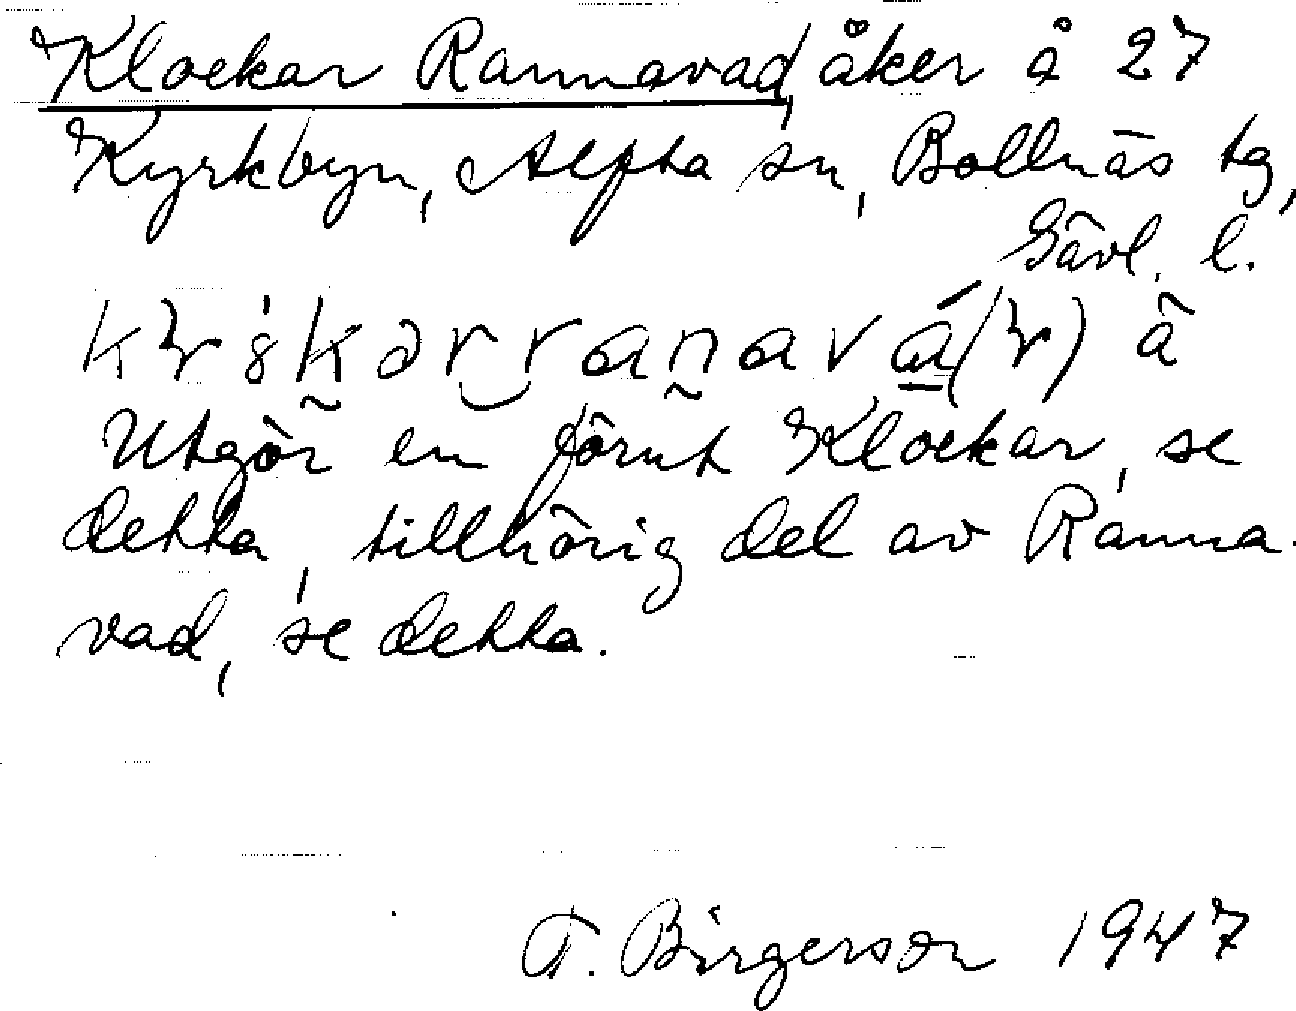 Klockar Rannavad, åker å 27
Kyrkbyn, Alfta sn, Bollnäs tg,
Gävl. l.
Utgör en förut Klockar, se
detta, tillhörig del av Ranna-
vad, se detta.
T. Birgerson 1947